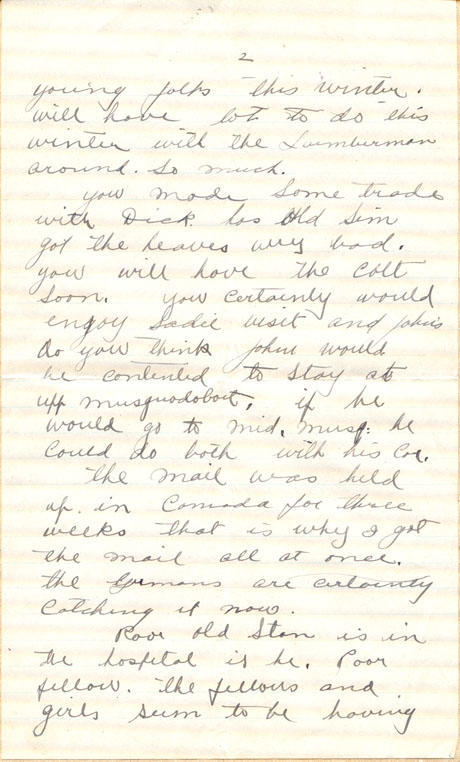 2
young folks this winter.
will have lots to do this
winter with the Lumberman
around. So much.
you made some trade
with Dick. has Old Sim
got the heaves very bad.
you will have the Colt
soon. you certainly would
enjoy Sadie visit and John's
do you think John would
be contented to stay at
upp musquodoboit, if he
would go to mid. musq: he
could do both with his Car.
the mail was held
up in Canada for three
weeks that is why I got
the mail all at once.
the Germans are certainty
catching it now.
Poor Old Stan is in
the hospital is he. Poor
fellow. the fellows and
girls seem to be having